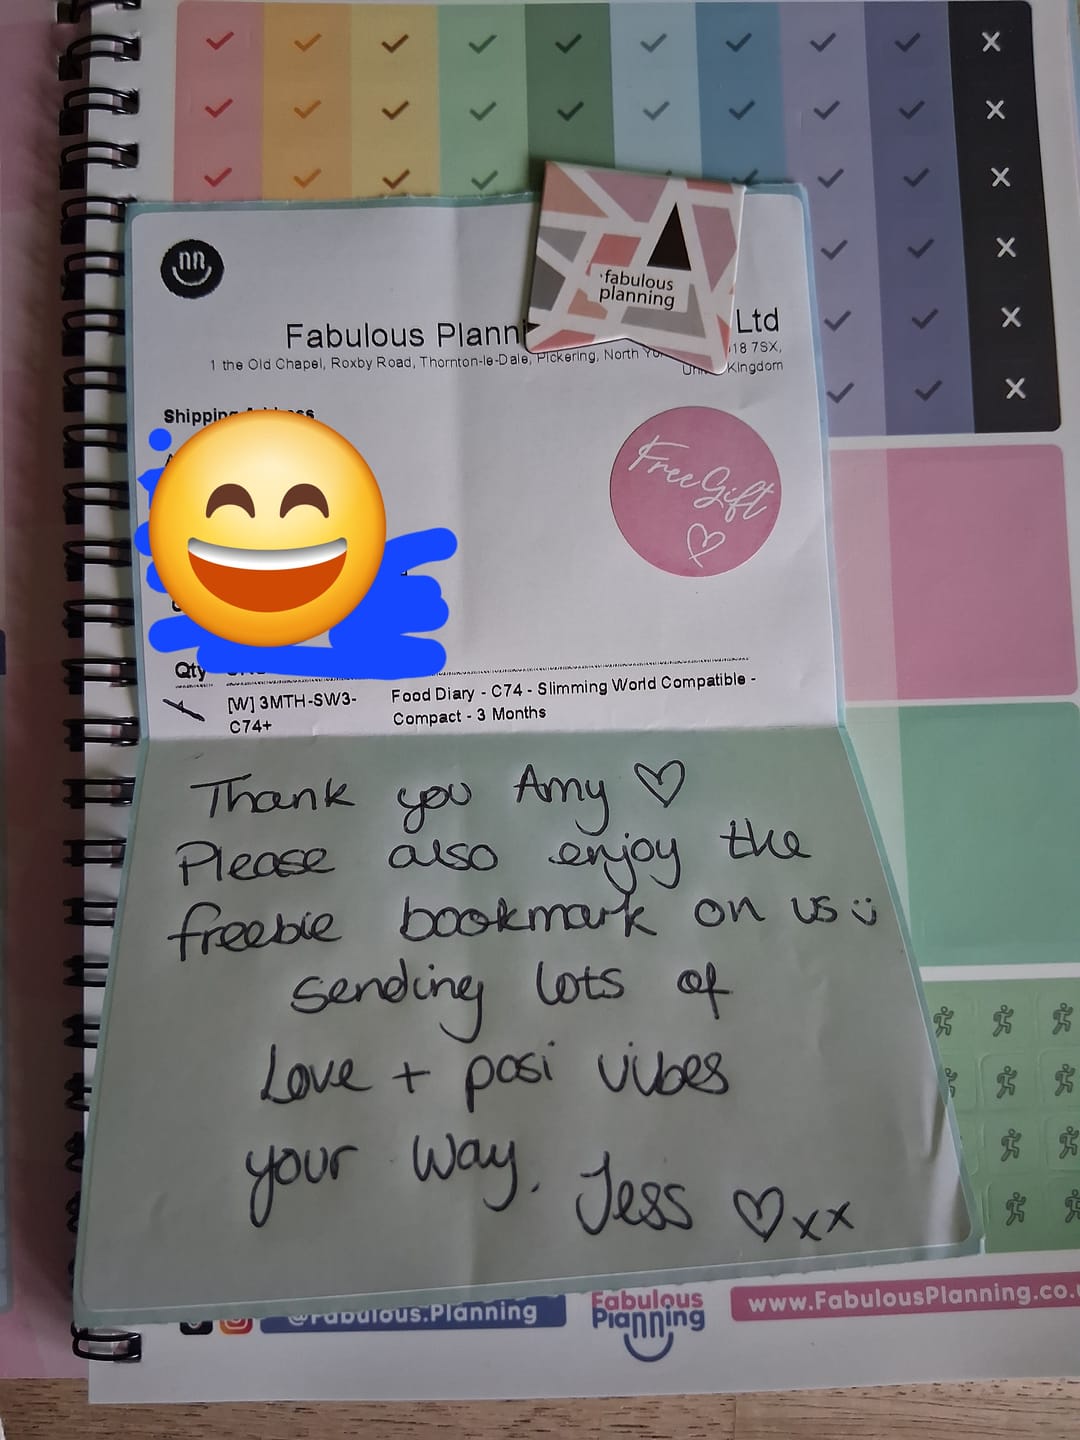 fabulous
planning
Fabulous Planni Ltd
1 the Old Chapel, Roxby Road, Thornton-le-Dale, Pickering, North Yo 18 7SX,
Kingdom
Shipping
Free Gift
Qty
[W] 3MTH-SW3-
C74+
Food Diary - C74 - Slimming World Compatible -
Compact - 3 Months
Thank you Amy ♡
Please also enjoy the
freebie bookmark on us
sending lots of
Love + posi vibes
your way. Jess ♡xx
@Fabulous.Planning
Fabulous
Planning
www.FabulousPlanning.co.u